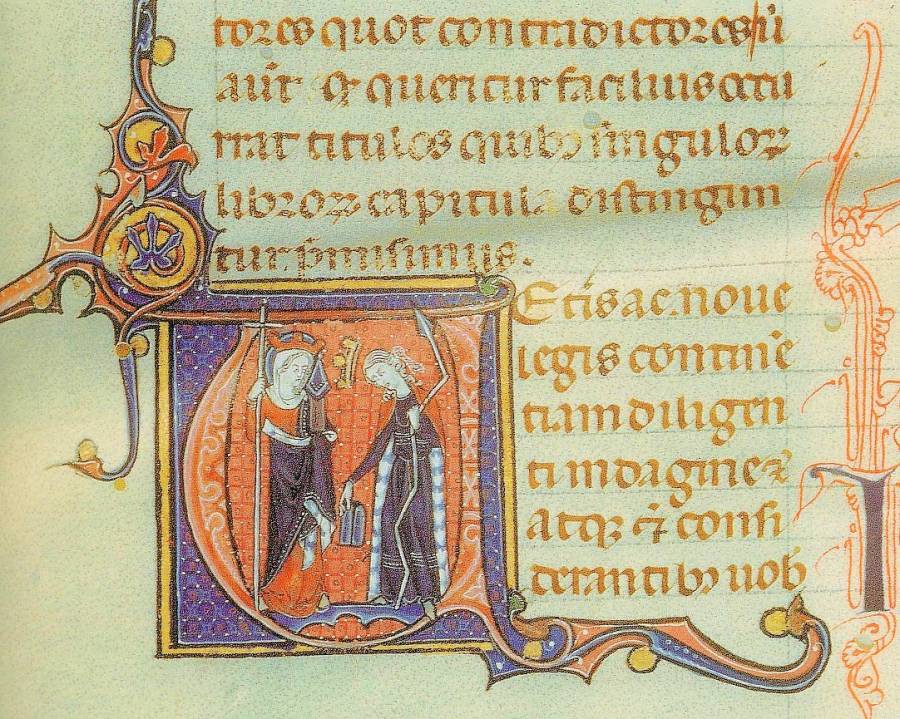 tores quot contradictores / ū
aūt qđ queritur facilius occu
rrat titulos quibꝫ singuloꝝ
libroꝝ capitula distingun
tur p̄misimus.
Et̄is ac noue
legis contine
tiam diligen
ti indagine ⁊
atqꝫ ⁊̄ consi
derantibꝫ nob